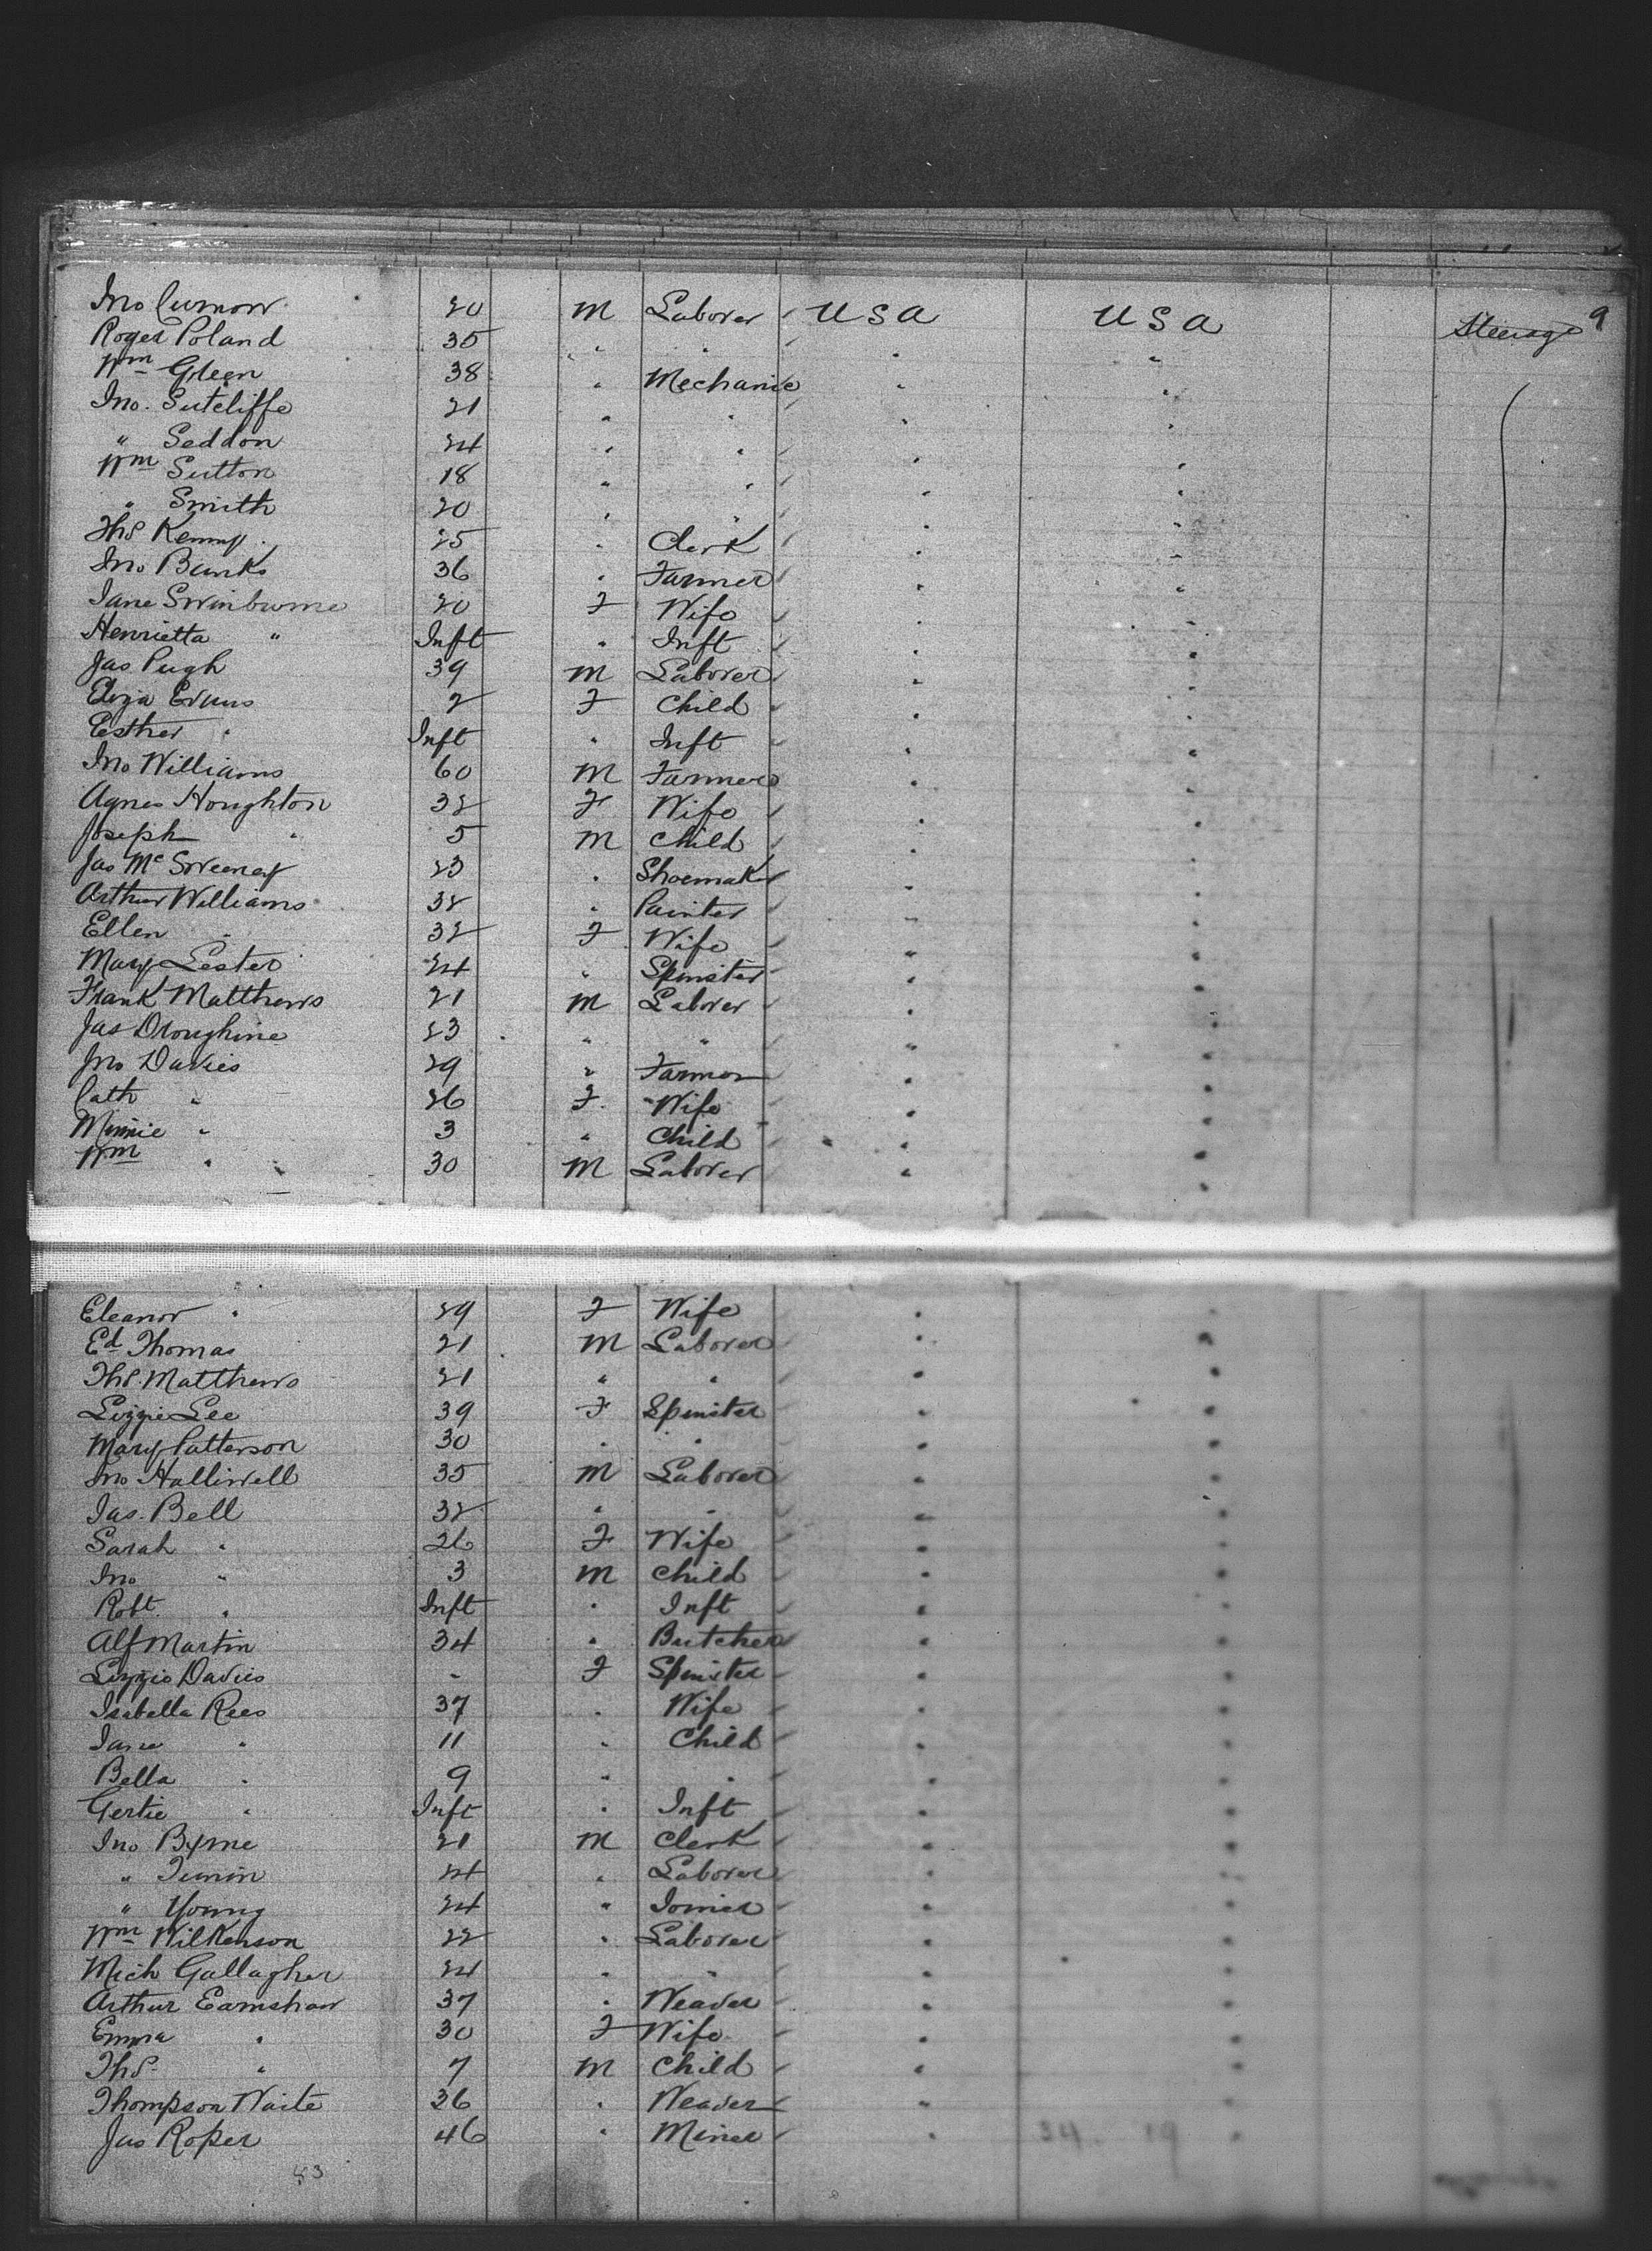 9
Jno Curnow 20 M Laborer USA USA Steerage
Roger Poland 35 " " " "
Wm Green 38 " Mechanic " "
Jno. Sutcliffe 21 " " " "
" Seddon 24 " " " "
Wm Sutton 18 " " " "
" Smith 20 " " " "
Ths Kemp 25 " Clerk " "
Jno Banks 36 " Farmer " "
Jane Swinburne 20 F Wife " "
Henrietta " Inft " Inft " "
Jas Pugh 39 M Laborer " "
Eliza Evans 2 F Child " "
Esther " Inft " Inft " "
Jno Williams 60 M Farmer " "
Agnes Houghton 32 F Wife " "
Joseph " 5 M Child " "
Jas McSweeney 23 " Shoemaker " "
Arthur Williams 32 " Painter " "
Ellen " 32 F Wife " "
Mary Lester 24 " Spinster " "
Frank Matthews 21 M Laborer " "
Jas Droughine 23 " " " "
Jno Davies 29 " Farmer " "
Cath " 26 F Wife " "
Minnie " 3 " Child " "
Wm " 30 M Laborer " "
Eleanor " 29 F Wife " "
Ed Thomas 21 M Laborer " "
Ths. Matthews 21 " " " "
Lizzie Lee 39 F Spinster " "
Mary Patterson 30 " " " "
Jno Halliwell 35 M Laborer " "
Jas. Bell 32 " " " "
Sarah " 26 F Wife " "
Jno " 3 M Child " "
Robt. " Inft " Inft " "
Alf Martin 34 " Butcher " "
Lizzie Davies " F Spinster " "
Isabella Rees 37 " Wife " "
Jane " 11 " Child " "
Bella " 9 " " " "
Gertie " Inft " Inft " "
Jno Byrne 21 M Clerk " "
" 24 " Laborer " "
" Young 24 " Joiner " "
Wm Wilkenson 22 " Laborer " "
Mich Gallagher 24 " " " "
Arthur Earnshaw 37 " Weaver " "
Emma " 30 F Wife " "
Ths. " 7 M Child " "
Thompson Waite 26 " Weaver " "
Jas Roper 46 " Miner " "
53